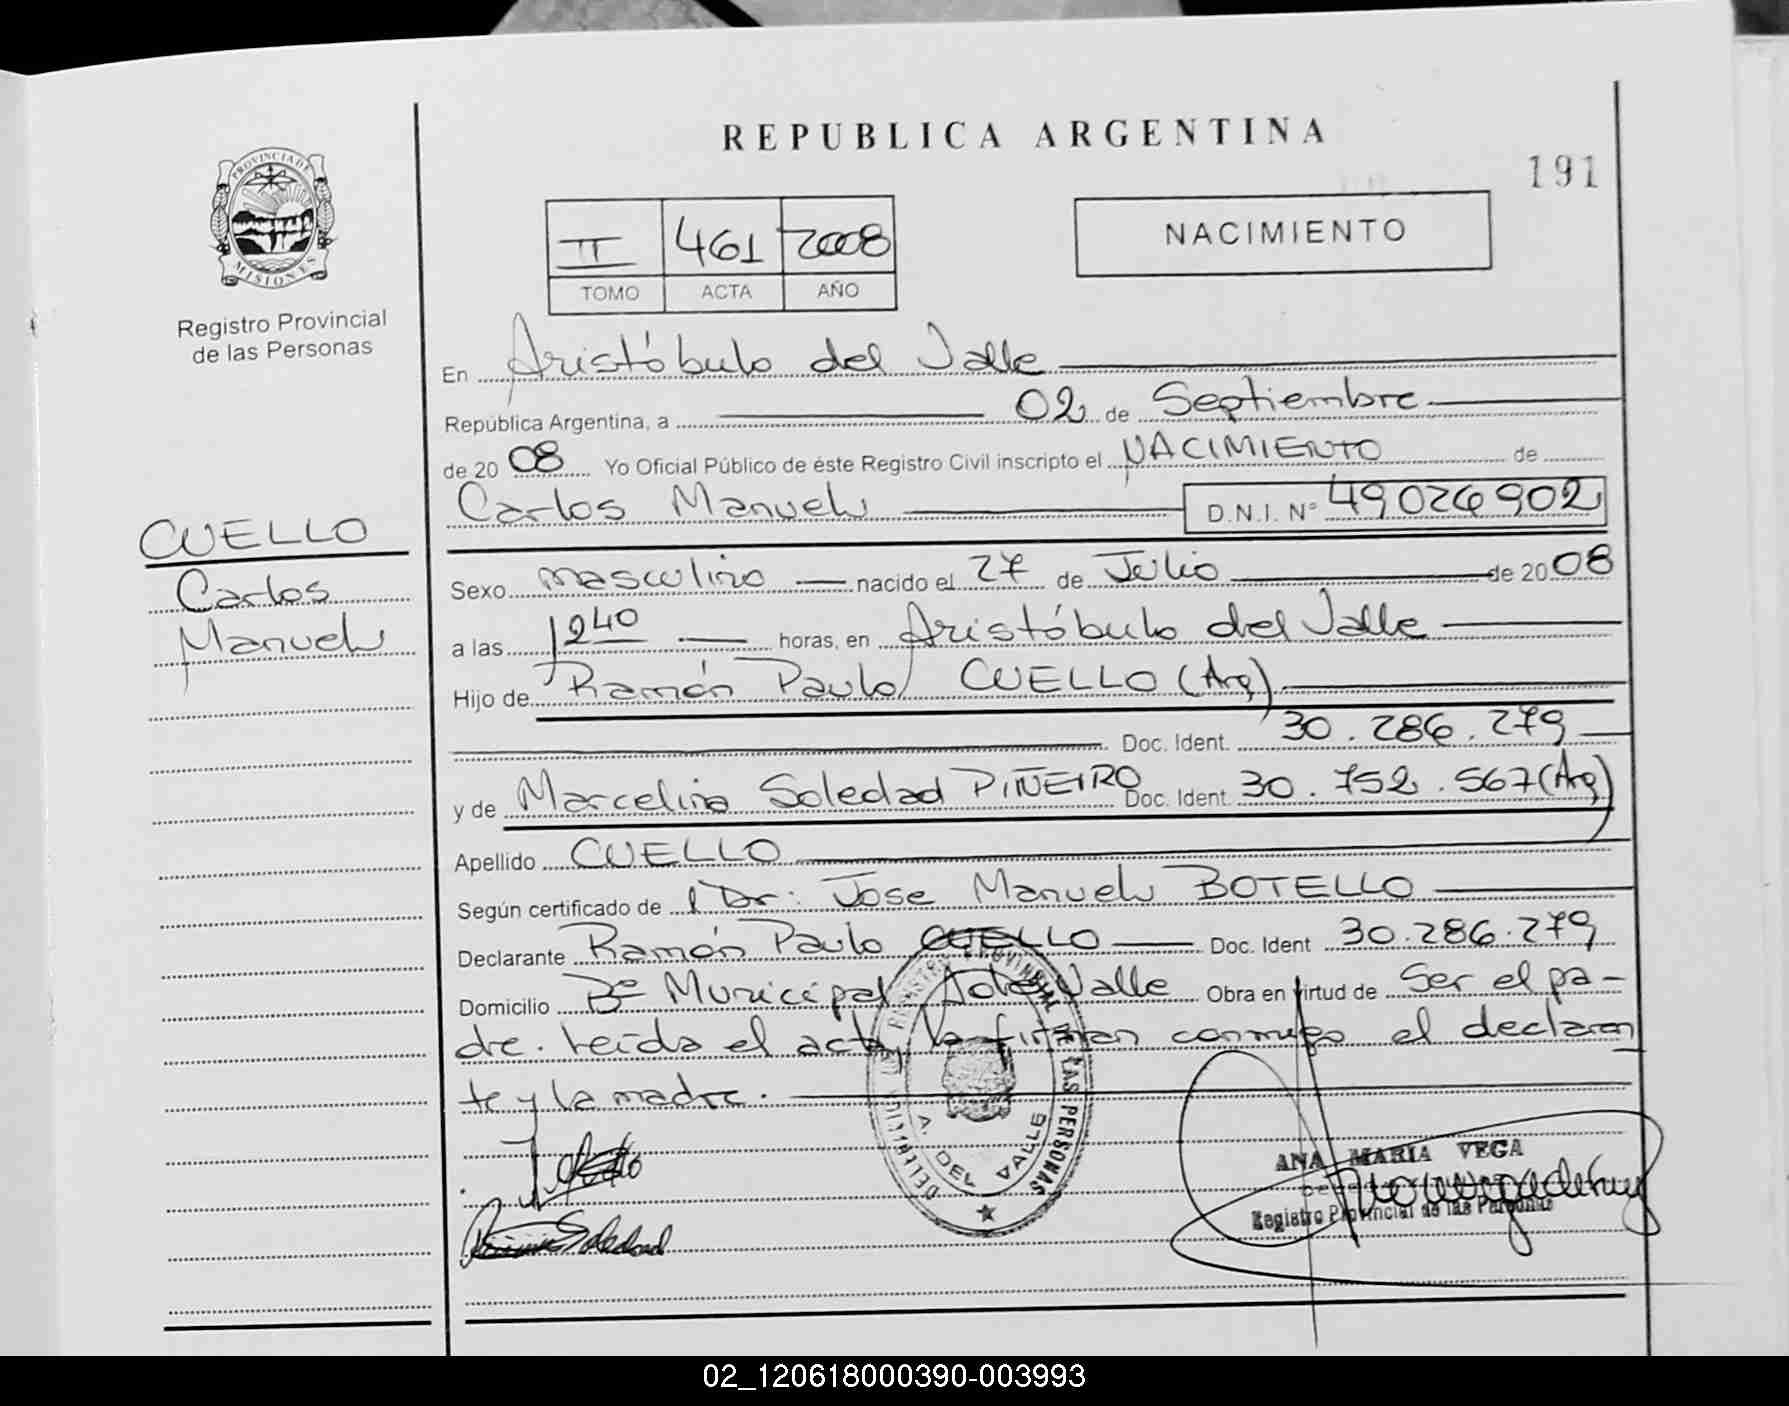 REPUBLICA ARGENTINA
191
PROVINCIA DE MISIONES
Registro Provincial
de las Personas
II 461 2008
TOMO ACTA AÑO
NACIMIENTO
En Aristóbulo del Valle
República Argentina, a 02 de Septiembre
de 2008 Yo Oficial Público de éste Registro Civil inscripto el NACIMIENTO de
Carlos Manuel D.N.I. Nº 49026902
CUELLO
Carlos
Manuel
Sexo masculino nacido el 27 de Julio de 2008
a las 1240 horas, en Aristóbulo del Valle
Hijo de Ramón Paulo CUELLO (Arg)
Doc. Ident. 30.286.279
y de Marcelina Soledad PIÑEIRO Doc. Ident. 30.752.567 (Arg)
Apellido CUELLO
Según certificado de l Dr: Jose Manuel BOTELLO
Declarante Ramón Paulo CUELLO Doc. Ident 30.286.279
Domicilio Bº Municipal A del Valle Obra en virtud de Ser el pa-
dre. Leída el acta, la firman conmigo el declaran
te y la madre.
REGISTRO PROVINCIAL DE LAS PERSONAS
A. DEL VALLE
Soledad
ANA MARIA VEGA
Registro Provincial de las Personas
02_120618000390-003993